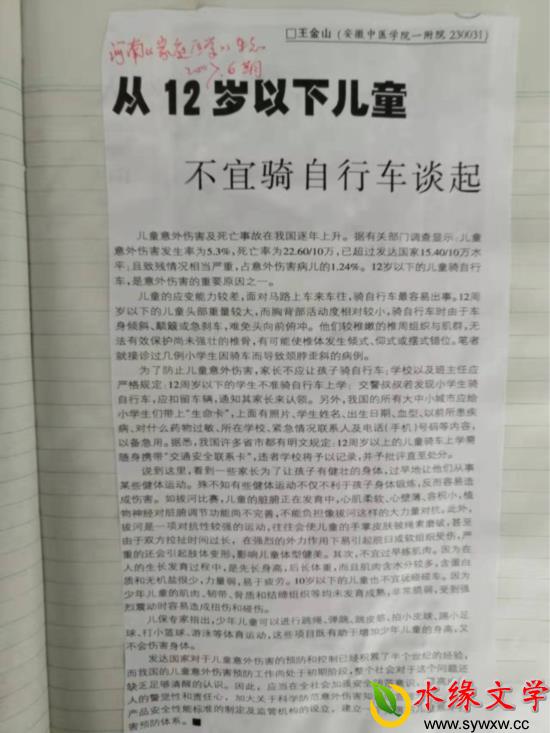 □王金山(安徽中医学院一附院 230031)
河南《家庭医学》
6期
从12岁以下儿童
不宜骑自行车谈起
儿童意外伤害及死亡事故在我国逐年上升。据有关部门调查显示:儿童
意外伤害发生率为5.3%,死亡率为22.60/10万,已超过发达国家15.40/10万水
平;且致残情况相当严重,占意外伤害病儿的1.24%。12岁以下的儿童骑自行
车,是意外伤害的重要原因之一。
儿童的应变能力较差,面对马路上车来车往,骑自行车最容易出事。12周
岁以下的儿童头部重量较大,而胸背部活动度相对较小,骑自行车时由于车
身倾斜、颠簸或急刹车,难免头向前俯冲。他们较稚嫩的椎周组织与肌群,无
法有效保护尚未强壮的椎骨,有可能使椎体发生倾式、仰式或摆式错位。笔者
就接诊过几例小学生因骑车而导致颈脖歪斜的病例。
为了防止儿童意外伤害,家长不应让孩子骑自行车;学校以及班主任应
严格规定:12周岁以下的学生不准骑自行车上学;交警叔叔若发现小学生骑
自行车,应扣留车辆,通知其家长来认领。另外,我国的所有大中小城市应给
小学生们带上“生命卡”,上面有照片、学生姓名、出生日期、血型、以前所患疾
病、对什么药物过敏、所在学校、紧急情况联系人及电话(手机)号码等内容,
以备急用。据悉,我国许多省市都有明文规定:12周岁以上的儿童骑车上学需
随身携带“交通安全联系卡”,违者学校将予以记录,并予批评直至处分。
说到这里,看到一些家长为了让孩子有健壮的身体,过早地让他们从事
某些健体运动。殊不知有些健体运动不仅不利于孩子身体锻炼,反而容易造
成伤害。如拔河比赛,儿童的脏腑正在发育中,心肌柔软、心壁薄、容积小,植
物神经对脏腑调节功能尚不完善,不能负担像拔河这样的大力量对抗。此外,
拔河是一项对抗性较强的运动,往往会使儿童的手掌皮肤被绳索磨破,甚至
由于双方拉扯时间过长,在强烈的外力作用下易引起脱臼或软组织受伤,严
重的还会引起肢体变形,影响儿童体型健美。其次,不宜过早练肌肉。因为在
人的生长发育过程中,是先长身高,后长体重,而且肌肉含水分较多,含蛋白
质和无机盐很少,力量弱,易于疲劳。10岁以下的儿童也不宜玩碰碰车。因为
少年儿童的肌肉、韧带、骨质和结缔组织等均未发育成熟,非常脆弱,受到强
烈震动时容易造成扭伤和碰伤。
儿保专家指出,少年儿童可以进行跳绳、弹跳、跳皮筋、拍小皮球、踢小足
球、打小篮球、游泳等体育运动,这些项目既有助于增加少年儿童的身高,又
不会伤害身体。
发达国家对于儿童意外伤害的预防和控制已经积累了半个世纪的经验,
而我国的儿童意外伤害预防工作尚处于初期阶段,整个社会对于这个问题还
缺乏足够清醒的认识。因此,应当在全社会加强安全防范意识,
人的警觉性和责任心,加大关于科学防范意外伤害
产品安全性能标准的制定及监管机构的设立,建立一
害预防体系。■
水缘文学
www.sywxw.cc